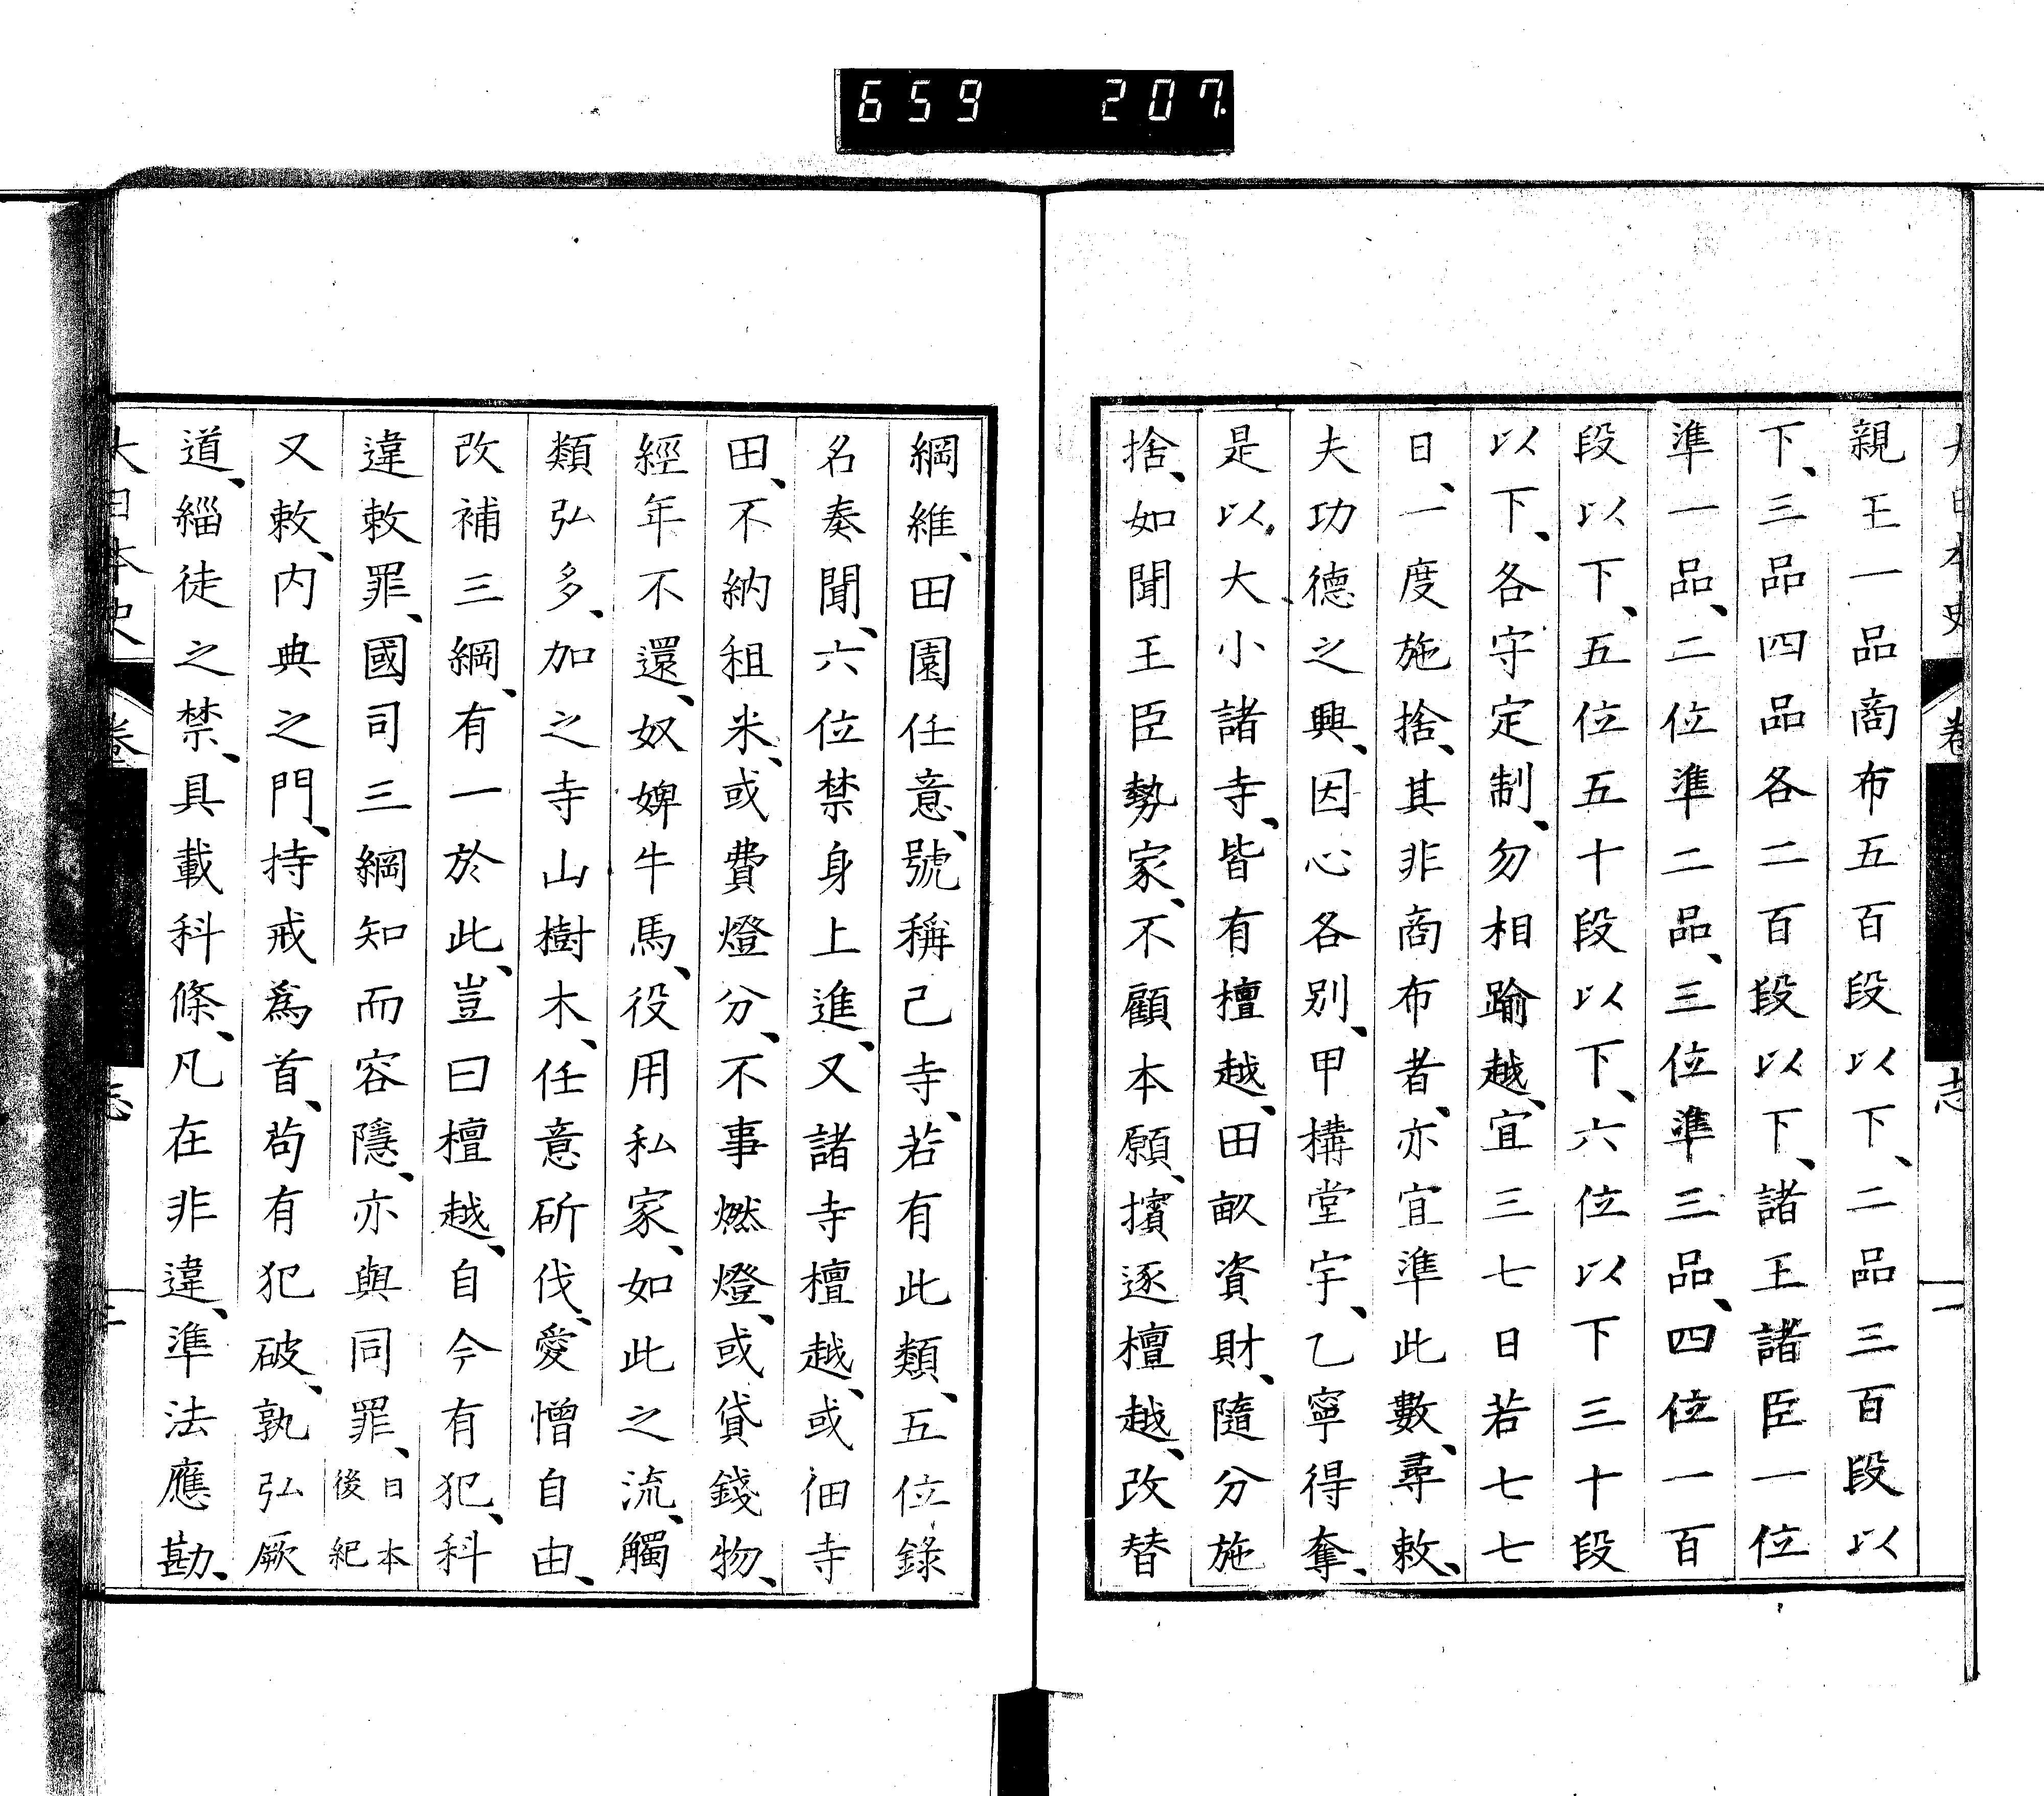 659 207
大日本史 卷 志 一
親王一品商布五百段以下、二品三百段以
下、三品四品各二百段以下、諸王諸臣一位
準一品、二位準二品、三位準三品、四位一百
段以下、五位五十段以下、六位以下三十段
以下、各守定制、勿相踰越、宜三七日若七七
日、一度施捨、其非商布者、亦宜準此數、尋敕、
夫功德之興、因心各別、甲構堂宇、乙寧得奪、
是以大小諸寺、皆有檀越、田畝資財、隨分施
捨、如聞王臣勢家、不顧本願、擯逐檀越、改替
綱維、田園任意、號稱己寺、若有此類、五位錄
名奏聞、六位禁身上進、又諸寺檀越、或佃寺
田、不納租米、或費燈分、不事燃燈、或貸錢物、
經年不還、奴婢牛馬、役用私家、如此之流、觸
類弘多、加之寺山樹木、任意斫伐、愛憎自由、
改補三綱、有一於此、豈曰檀越、自今有犯、科
違敕罪、國司三綱知而容隱、亦與同罪、日本後紀
又敕、內典之門、持戒爲首、苟有犯破、孰弘厥
道、緇徒之禁、具載科條、凡在非違、準法應勘、
大日本史 卷 志